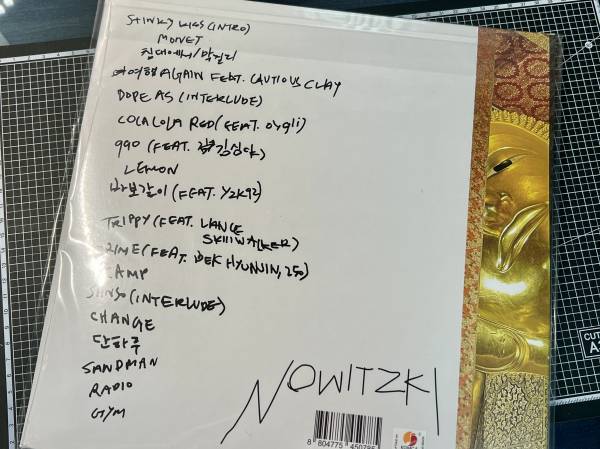 STINKY KISS (INTRO)
MONET
침대에서/막걸리
여행 AGAIN FEAT. CAUTIOUS CLAY
DOPE AS (INTERLUDE)
COLA COLA RED (FEAT. oygli)
990 (FEAT. 김심야)
LEMON
바보같이 (FEAT. Y2K92)
TRIPPY (FEAT. LANCE
SKIIIWALKER)
(FEAT. BEK HYUNJIN, 250)
CAMP
(INTERLUDE)
CHANGE
단하루
SANDMAN
RADIO
GYM
NOWITZKI
8 804775 450785